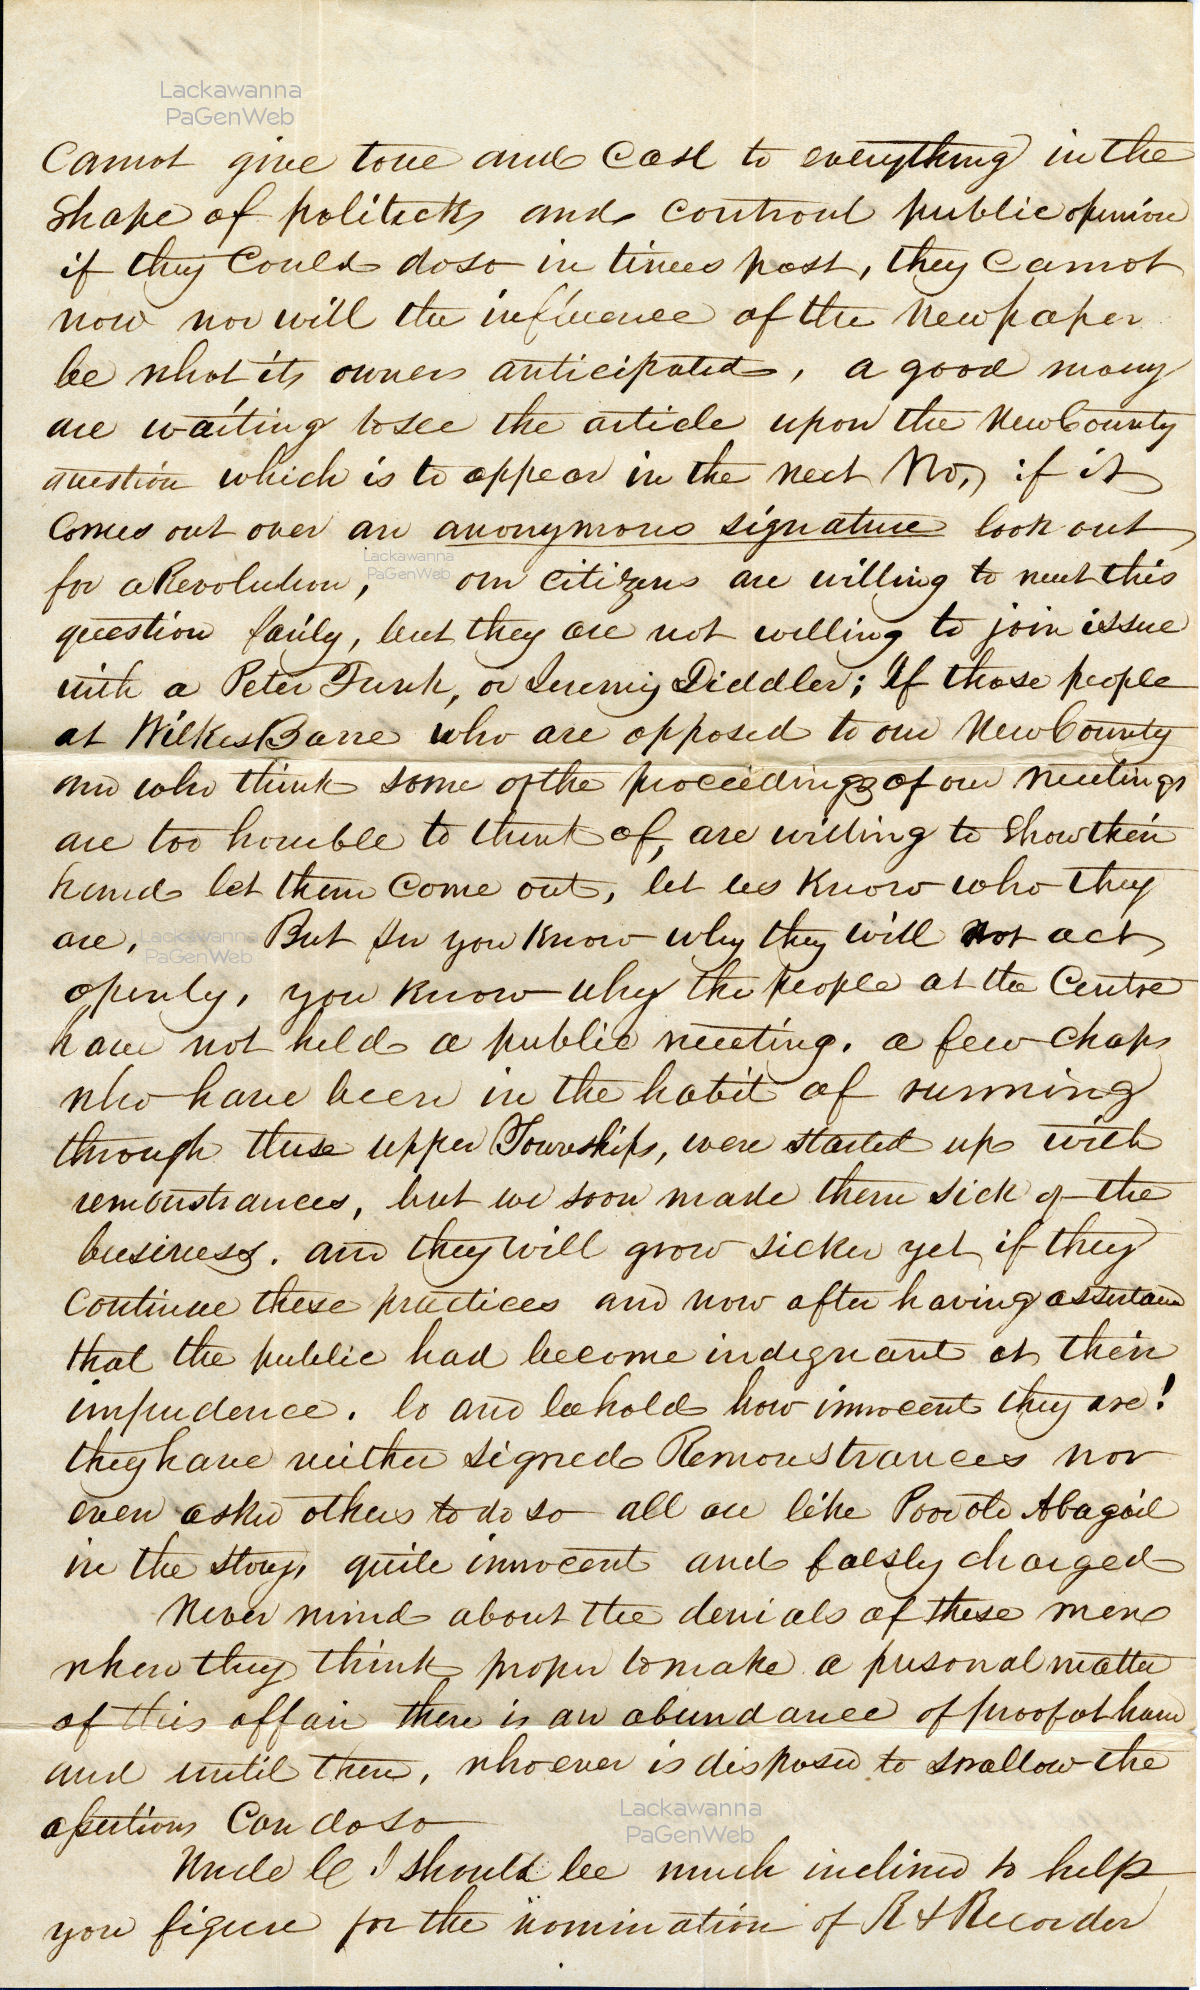 Lackawanna
PaGenWeb
Cannot give tone and Cast to everything in the
Shape of politicks and controul public opinion
if they Could do so in times past, they Cannot
now nor will the influence of the Newpaper
be what its owners anticipated, a good many
are waiting to see the article upon the New County
question which is to appear in the next No, if it
Comes out over an anonymous signature look out
for a Revolution, our citizens are willing to meet this
Lackawanna
PaGenWeb
question fairly, but they are not willing to join issue
with a Peter Funk, or Jeremy Diddler; If those people
at WilkesBarre who are opposed to our New County
and who think some of the proceedings of our meetings
are too horrible to think of, are willing to Show their
hands let them Come out, let us Know who they
are, But Sir you Know why they will not act
Lackawanna
PaGenWeb
openly, you Know why the people at the Centre
have not held a public meeting. a few chaps
who have been in the habit of running
through these upper Townships, were started up with
remonstrances, but we soon made them sick of the
business. and they will grow sicker yet if they
Continue these practices and now after having assertaind
that the public had become indignant at their
impudence. lo and behold how innocent they are!
they have neither signed Remonstrances nor
even asked others to do so all are like Poor old Abagail
in the story, quite innocent and falsly charged
Never mind about the denials of these men
when they think proper to make a personal matter
of this affair there is an abundance of proof at hand
and until then, whoever is disposed to swallow the
assertions Can do so
Lackawanna
PaGenWeb
Uncle C I should be much inclined to help
you figure for the nomination of R & Recorder